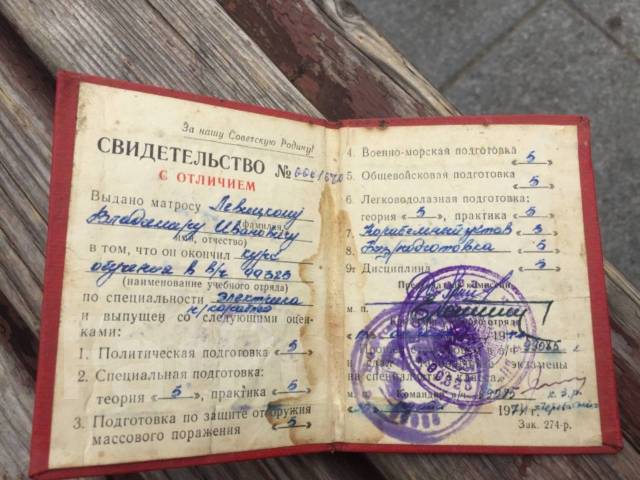 За нашу Советскую Родину!
СВИДЕТЕЛЬСТВО №
С ОТЛИЧИЕМ
Выдано матросу Левицкому
(фамилия,
Владимиру Ивановичу
имя, отчество)
в том, что он окончил курс
обучения в в/ч 99323
(наименование учебного отряда)
по специальности электрика
н/корабно
и выпущен со следующими оцен-
ками:
1. Политическая подготовка «5»
2. Специальная подготовка:
теория «5», практика «5»
3. Подготовка по защите от оружия
массового поражения «5»
4. Военно-морская подготовка
«5»
5. Общевойсковая подготовка
«5»
6. Легководолазная подготовка:
теория «5», практика «5»
7. Корабельный устав «5»
8. Физподготовка «5»
9. Дисциплина «5»
Председатель комиссии
м. п.
отряда
197
в/ч 99085
экзамены
на специалиста класса
м. п. Командир в/ч 99085
1974 г.
Зак. 274-р.